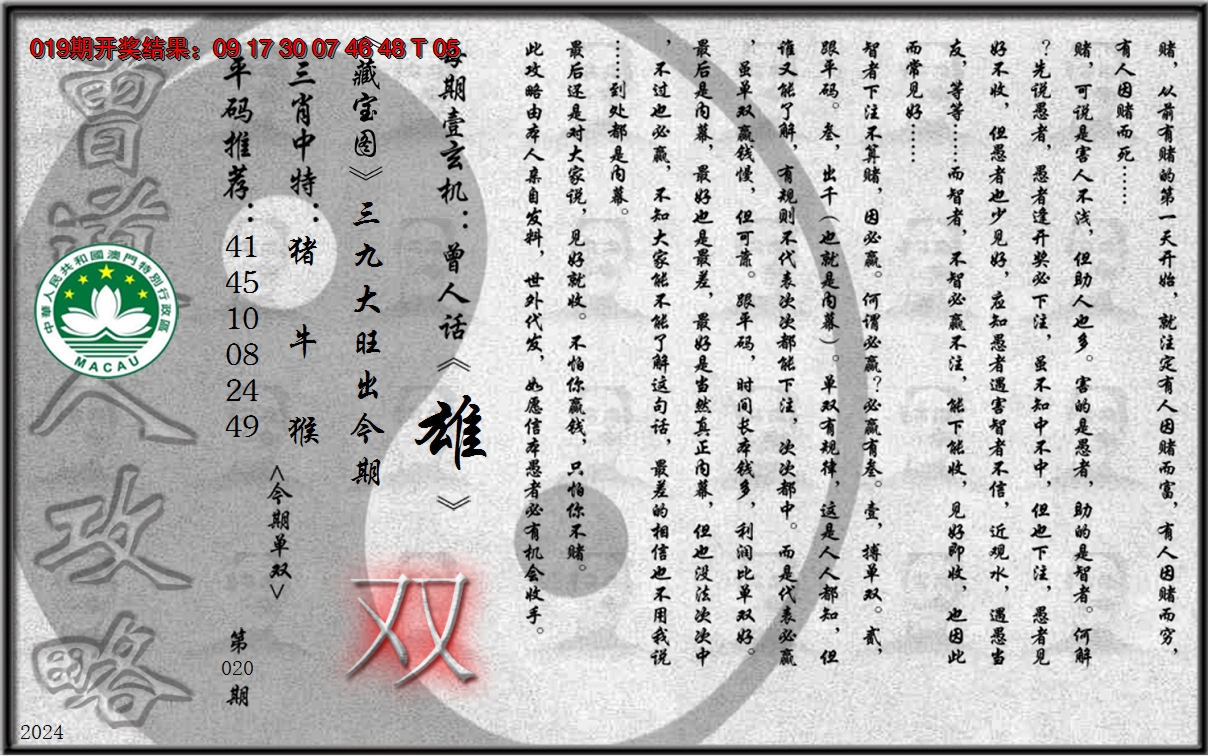 019期开奖结果：09 17 30 07 46 48 T 05
赌，从前有赌的第一天开始，就注定有人因赌而富，有人因赌而穷，
有人因赌而死……
赌，可说是害人不浅，但助人也多。害的是愚者，助的是智者。何解
？先说愚者，愚者逢开奖必下注，虽不知中不中，但也下注，愚者见
好不收，但愚者也少见好，应知愚者遇害智者不信，近观水，遇愚当
友，等等……而智者，不智必赢不注，能下能收，见好即收，也因此
而常见好……
智者下注不算赌，因必赢。何谓必赢？必赢有叁。壹，搏单双。贰，
跟平码。叁，出千（也就是内幕）。单双有规律，这是人人都知，但
谁又能了解，有规则不代表次次都能下注，次次都中。而是代表必赢
，虽单双赢钱慢，但可靠。跟平码，时间长本钱多，利润比单双好。
最后是内幕，最好也是最差，最好是当然真正内幕，但也没法次次中
，不过也必赢，不知大家能不能了解这句话，最差的相信也不用我说
……到处都是内幕。
最后还是对大家说，见好就收。不怕你赢钱，只怕你不赌。
此攻略由本人亲自发料，世外代发，如愿信本愚者必有机会收手。
每期壹玄机：曾人话《雄》
《藏宝图》三九大旺出今期
双
三肖中特：猪 牛 猴
<今期单双>
平码推荐：41 45 10 08 24 49
第020期
曾道人攻略
中華人民共和國澳門特別行政區
MACAU
2024